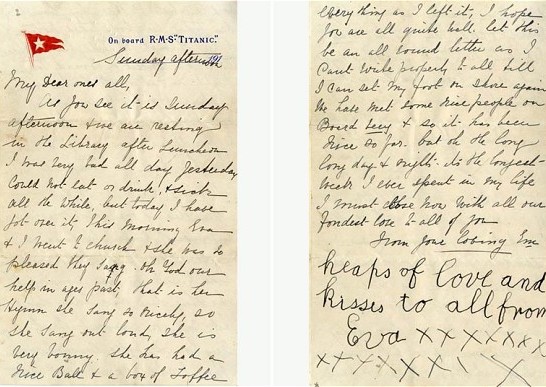 On board R·M·S·"TITANIC."
Sunday afternoon
My Dear ones all,
As you see it is Sunday
afternoon & we are resting
in the Library after Luncheon
I was very bad all day Yesterday
Could not eat or drink, & sick
all the while, but today I have
got over it, This morning Eva
& I went to church & she was so
pleased they sang Oh God our
help in ages past, that is her
Hymn she sang so nicely, so
she sang out loud, she is
very bonny. she has had a
nice Ball & a box of Toffee
everything as I left it, I hope
you are all quite well, let this
be an all round letter as I
Can't write properly to all till
I can set my foot on shore again
We have met some nice people on
Board & so it has been
nice so far. but oh the long
long day & nights its the longest
week I ever spent in my life
I must close now with all our
fondest love to all of you
from your Loving Em
heaps of love and
kisses to all from
Eva xxxxxxx
xxxxxx xx